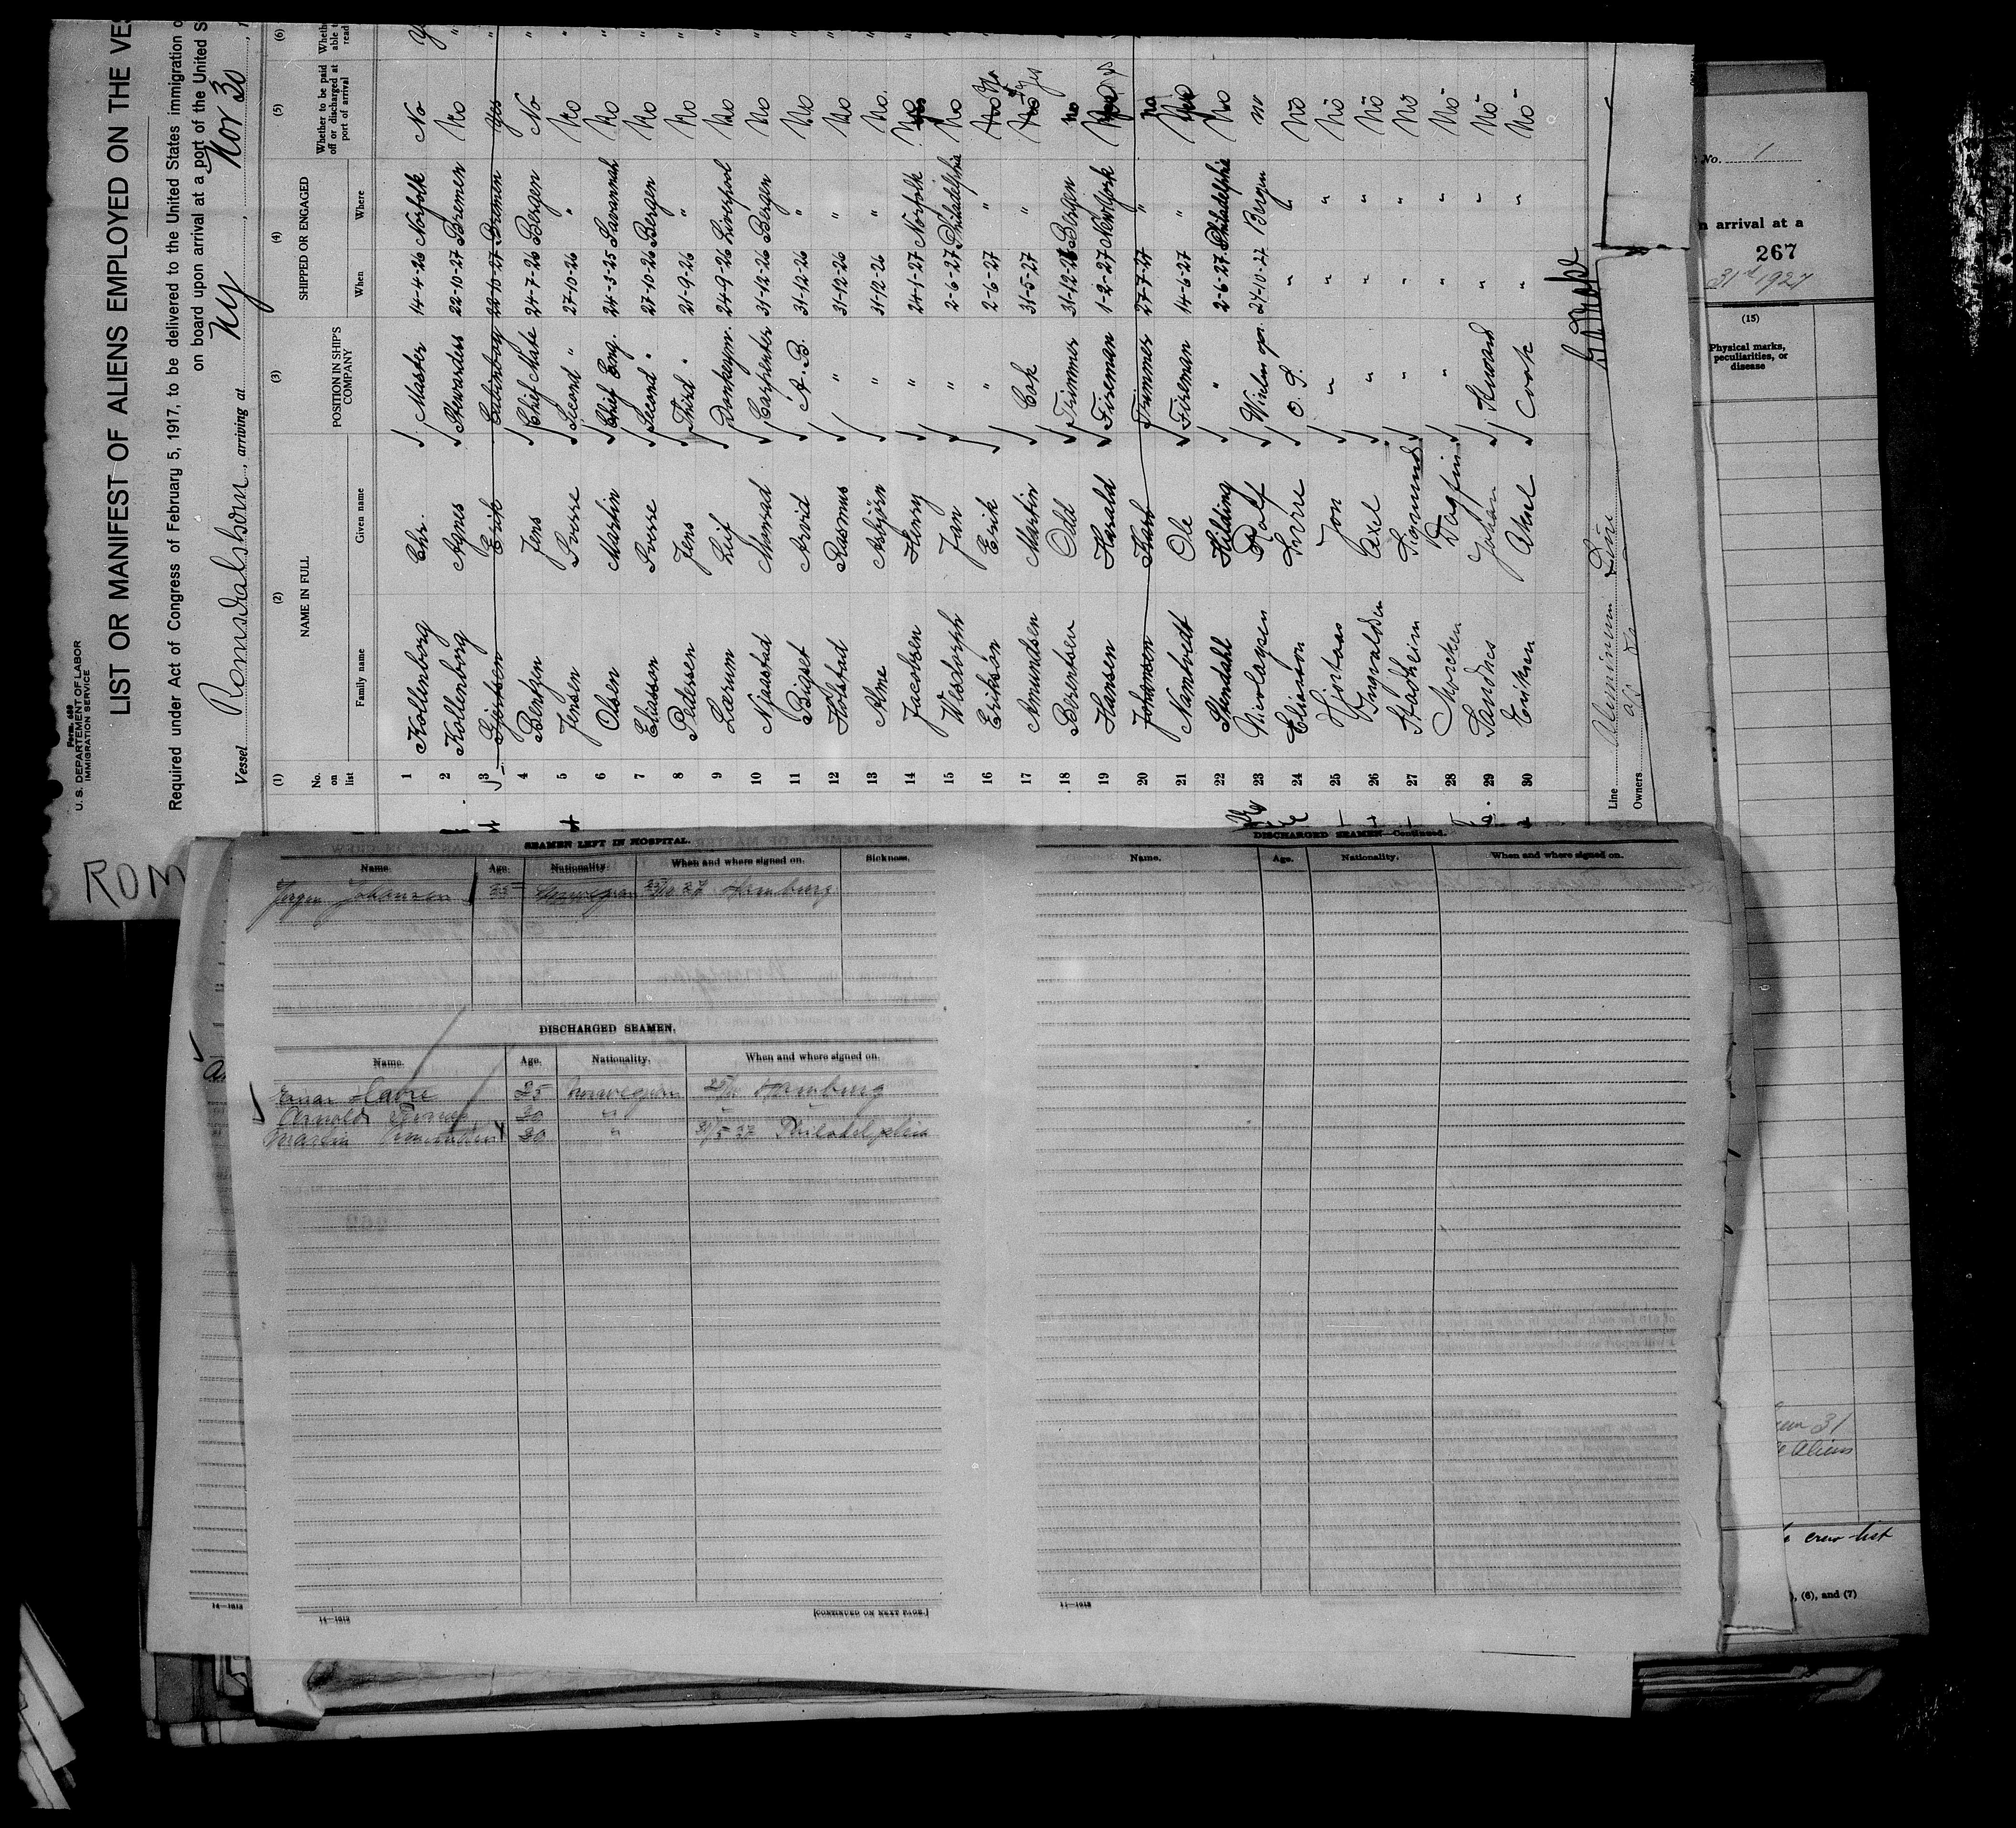 Form 689
U. S. DEPARTMENT OF LABOR
IMMIGRATION SERVICE
LIST OR MANIFEST OF ALIENS EMPLOYED ON THE VES
Required under Act of Congress of February 5, 1917, to be delivered to the United States immigration o
on board upon arrival at a port of the United S
Vessel Romsdalshorn, arriving at Ny, Nov 30, 1
(1) (2) (3) (4) (5) (6)
No. on list NAME IN FULL POSITION IN SHIP'S COMPANY SHIPPED OR ENGAGED Whether to be paid off or discharged at port of arrival Wheth able t read
Family name Given name When Where
1 Kollenborg Chr. Master 14-4-26 Norfolk No
2 Kollenborg Agnes Stewardess 22-10-27 Bremen No "
3 Gjertsen Erik Cabinboy 22-10-27 Bremen Yes "
4 Bentzen Jens Chief Mate 24-7-26 Bergen No "
5 Jensen Sverre Second " 27-10-26 " No "
6 Olsen Martin Chief Eng. 24-3-25 Savannah No "
7 Eliasson Sverre Second " 27-10-26 Bergen No "
8 Pedersen Jens Third " 21-9-26 " No "
9 Lærum Leif Donkeym. 24-9-26 Liverpool No "
10 Njaastad Monrad Carpenter 31-12-26 Bergen No "
11 Bigset Arvid A. B. 31-12-26 " No "
12 Holstad Rasmus " 31-12-26 " No "
13 Alme Asbjörn " 31-12-26 " No. "
14 Jacobsen Henry " 24-1-27 Norfolk No "
15 Wesdorph Jan " 2-6-27 Philadelphia No "
16 Erikson Erik " 2-6-27 " No "
17 Amundsen Martin Cok 31-5-27 " No Yes "
18 Berentsen Odd Trimmer 31-12-26 Bergen no "
19 Hansen Harald Fireman 1-2-27 New York "
20 Johansen Karl Trimmer 27-7-27 " no "
21 Namtvedt Ole Fireman 14-6-27 " "
22 Stendahl Hilding " 2-6-27 Philadelphia No "
23 Nicolaysen Rolf Wirelm opr. 27-10-27 Bergen no
24 Eliasson Sverre O. S. " " No
25 Jon " " " No
26 Axel " " " No
27 Stagheim " " " No
28 Dagfin " " " No
29 Sandnes Johan Stuward " " No
30 Eriksen Aksel Cook " " No
Line Aluminum Line
Owners
ROM
No. 1
n arrival at a
267
31st 1927
(15)
Physical marks, peculiarities, or disease
31
Aliens
crew list
), (6), and (7)
SEAMEN LEFT IN HOSPITAL.
Name. Age. Nationality. When and where signed on. Sickness.
Jørgen Johansen 25 Norwegian 25/10 27 Hamburg
DISCHARGED SEAMEN.
Name. Age. Nationality. When and where signed on.
Einar 25 Norwegian Hamburg
Arnold 20 " "
Martin Amundsen 20 " 31/5 27 Philadelphia
14—1012
[CONTINUED ON NEXT PAGE.]
14—1012
DISCHARGED SEAMEN—Continued.
Name. Age. Nationality. When and where signed on.
11—1012